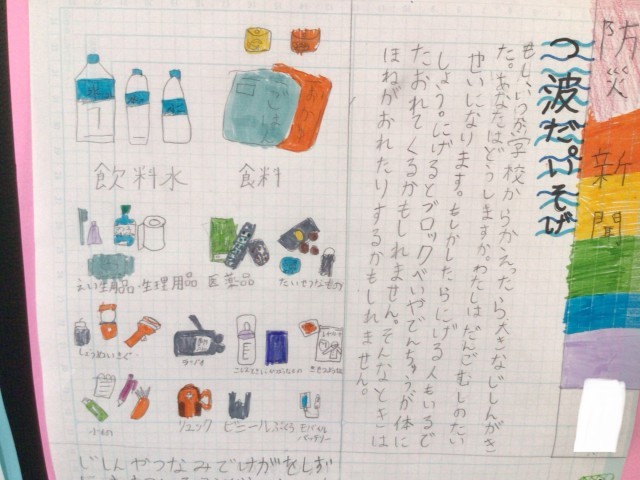 防災新聞
つ波だ。いそげ
もし、いつか学校からかえったら大きなじしんがき
た。あなたはどうしますか。わたしはだんごむしのたい
せいになります。もしかしたらにげる人もいるで
しょう。にげるとブロックべいやでんちゅうが体に
たおれてくるかもしれません。そんなときは
ほねがおれたりするかもしれません。
水
水
ごはん
おかず
飲料水
食料
えい生用品
生理用品
医薬品
たいせつなもの
しょうめいきぐ
ラジオ
リュック
ビニールぶくろ
モバイル
バッテリー
じしんやつなみでけがをしず